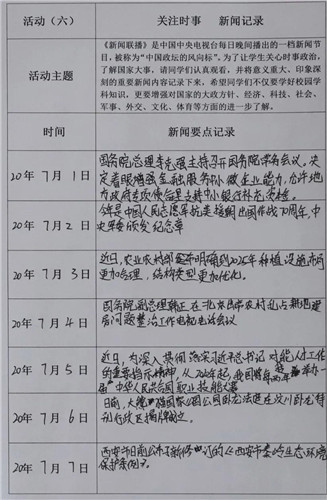 活动（六） 关注时事 新闻记录
活动主题
《新闻联播》是中国中央电视台每日晚间播出的一档新闻节
目，被称为“中国政坛的风向标”。为了让学生关心时事政治，
了解国家大事，请同学们认真观看，并将意义重大、印象深
刻的重要新闻内容记录下来，希望同学们不仅要学好校园学
科知识，更要增强对国家的大政方针、经济、科技、社会、
军事、外交、文化、体育等方面的进一步了解。
时间 新闻要点记录
20年 7月 1日
国务院总理李克强主持召开国务院常务会议。决
定着眼增强金融服务中小微企业能力，允许地
方政府专项债合理支持中小银行补充
20年 7月 2日
今年是中国人民志愿军抗美援朝出国作战70周年，中
央军委颁发纪念章
20年 7月 3日
近日，农业农村部 明确到2025年种植设施布局
更加合理，结构类型更加优化。
20年 7月 4日
国务院副总理韩正在北京出席农村乱占耕地建
房问题整治工作电视电话会议
20年 7月 5日
近日，为深入贯彻落实习近平总书记对技能人才工作
的重要指示精神，从2020年起，我国将每两年举办一
届“中华人民共和国职业技能大赛
20年 7月 6日
日前，大熊猫国家公园卧龙法庭在汶川卧龙特
别行政区揭牌成立。
20年 7月 7日
西安市日前公布新修订的《西安市秦岭生态环境
保护条例》。